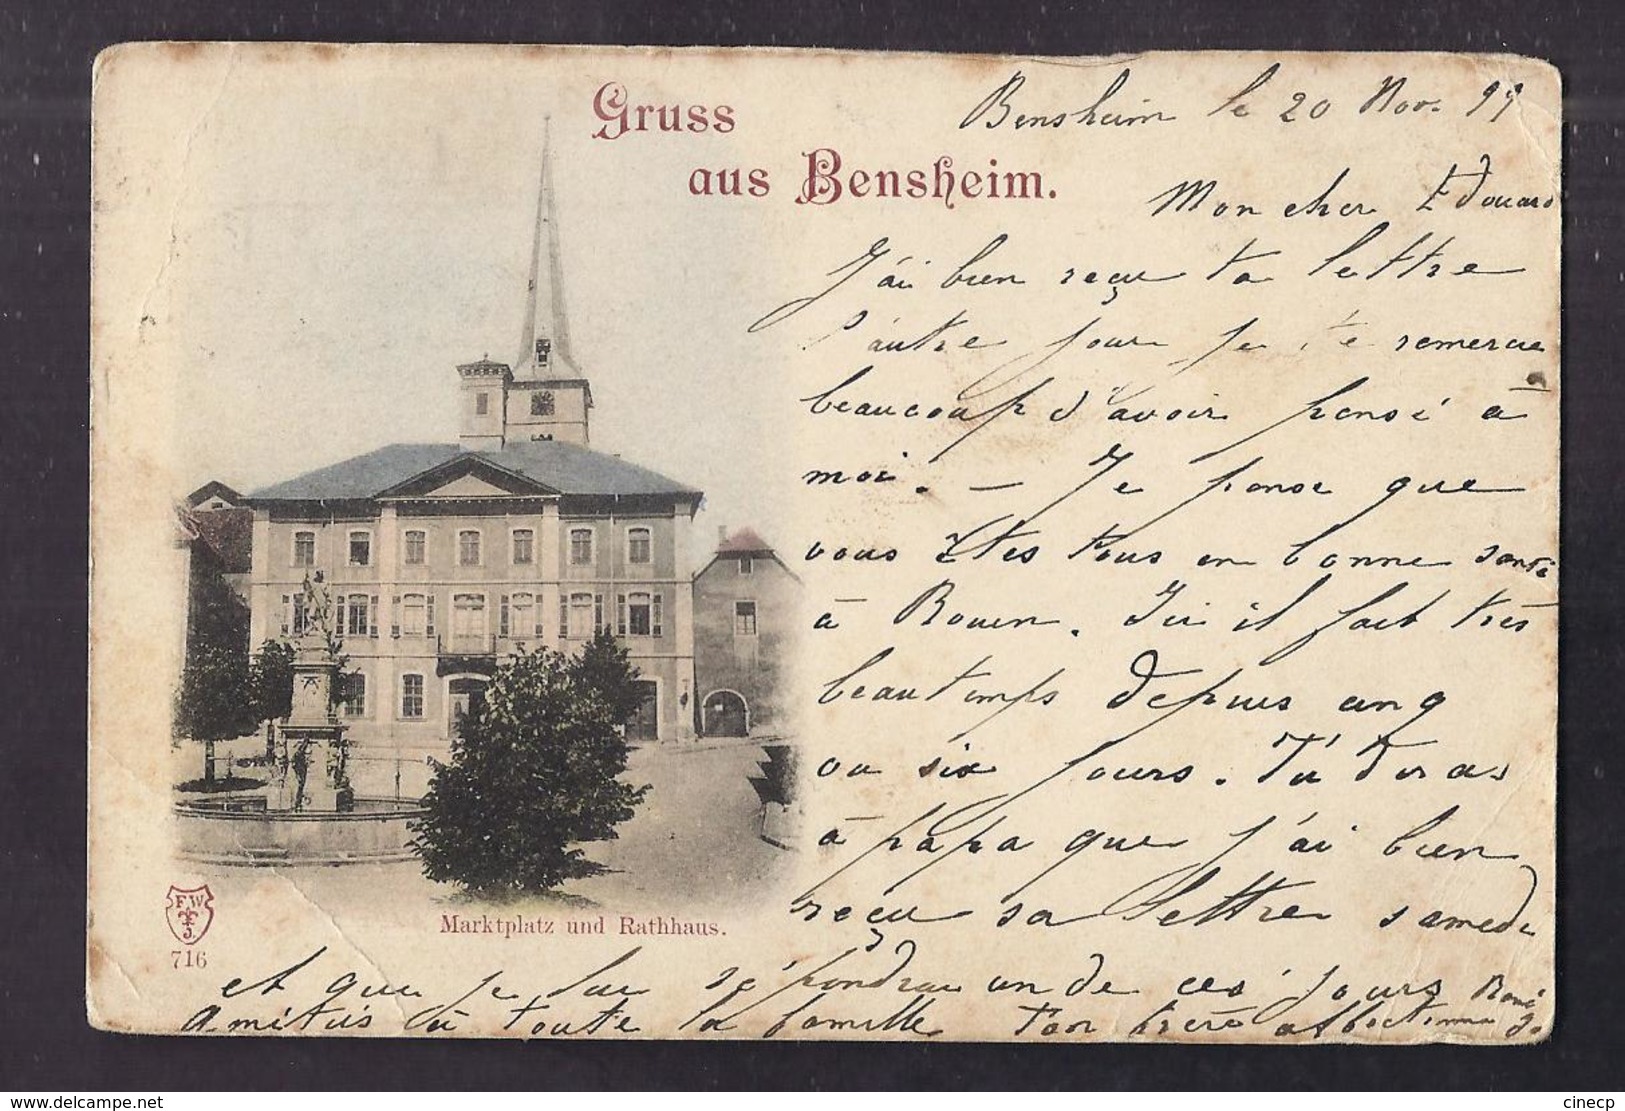 Gruss
aus Bensheim.
Bensheim le 20 Nov. 99
Mon cher Edouard
J'ai bien reçu ta lettre
l'autre jour je te remercie
beaucoup d'avoir pensé à
moi. — Je pense que
vous êtes tous en bonne santé
à Rouen. Ici il fait très
beau temps depuis cinq
ou six jours. Tu diras
à papa que j'ai bien
reçu sa lettre samedi
et que je lui répondrai un de ces jours
Amitiés à toute la famille Ton frère affectionné
René
Marktplatz und Rathhaus.
F W
3.
716
www.delcampe.net
cinecp